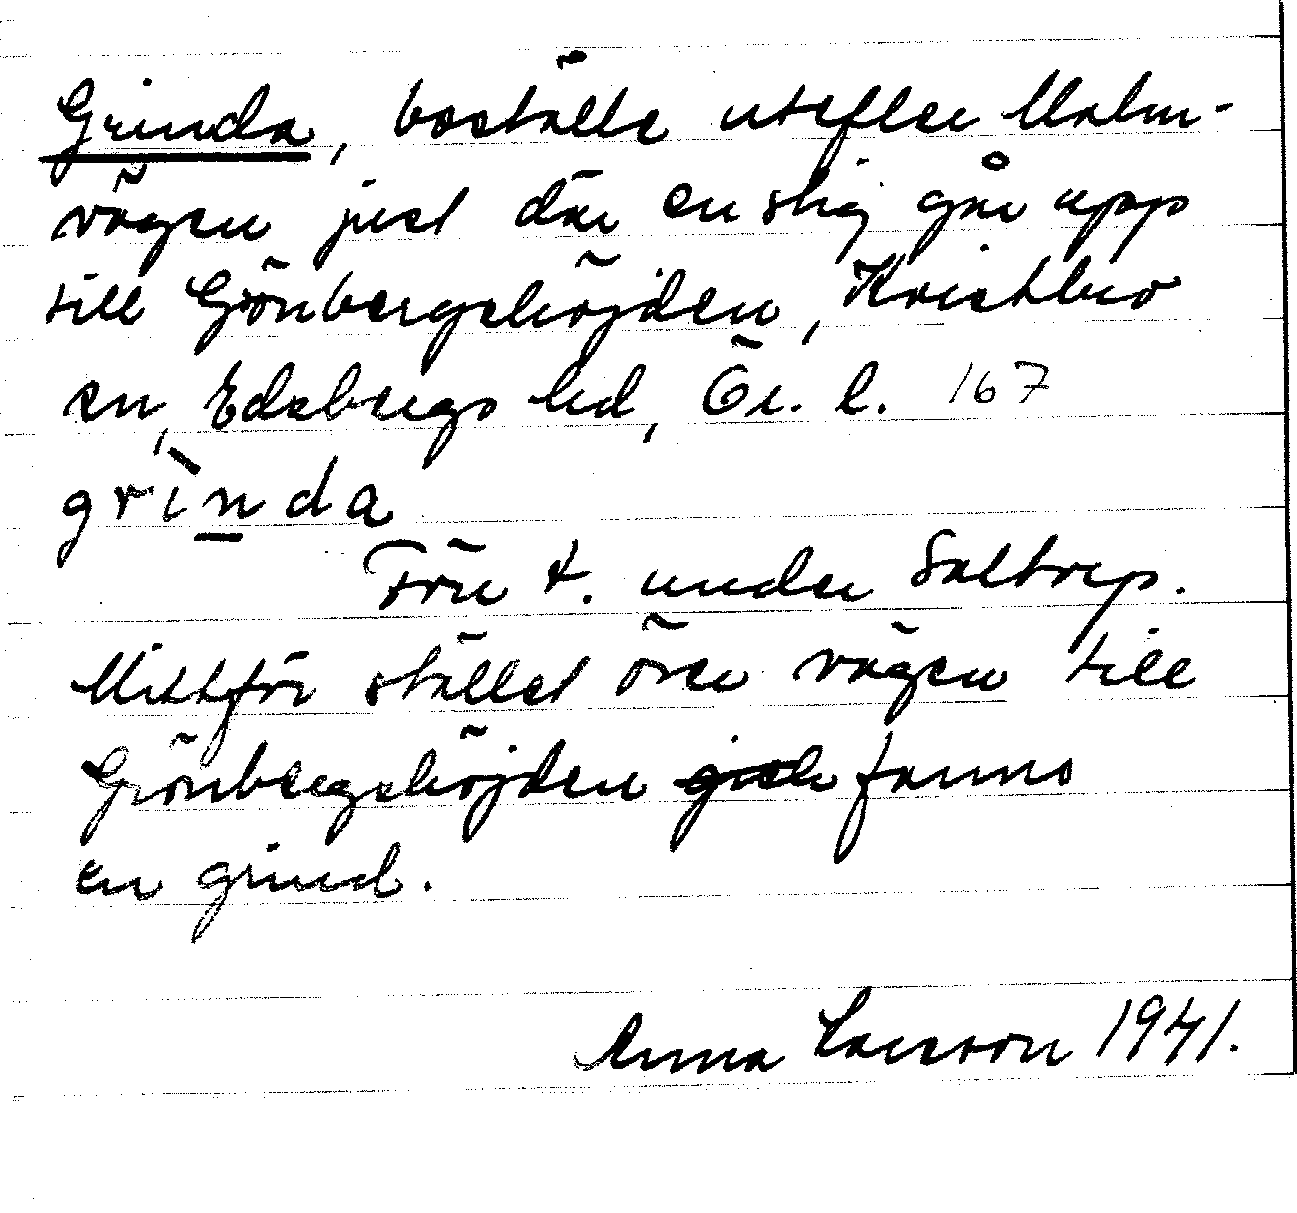 Grinda, boställe utefter Malm-
vägen just där en stig går upp
till Grönbergshöjden, Kvistbro
sn, Edsbergs hd, Ör. l. 167
grìnda
Förr t. under Saltrep.
Mittför stället över vägen till
Grönbergshöjden gick fanns
en grind.
Anna Larsson 1941.